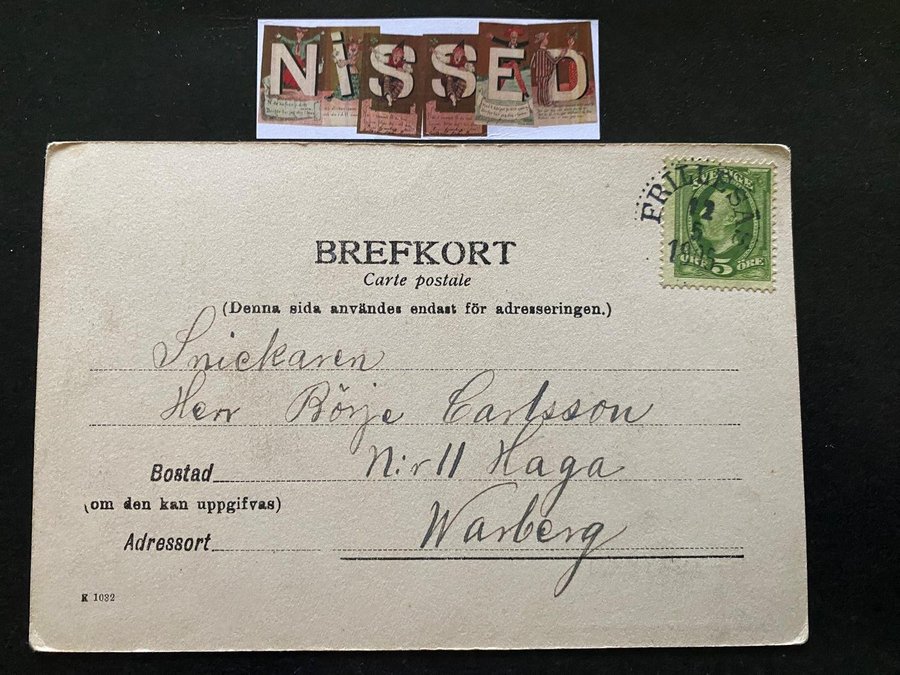 NISSED
BREFKORT
Carte postale
(Denna sida användes endast för adresseringen.)
SVERGE
FRILLESÅS
12
5
ÖRE 5 ÖRE
Snickaren
Herr Börje Carlsson
Bostad N:r 11 Haga
(om den kan uppgifvas)
Warberg
Adressort
K 1032